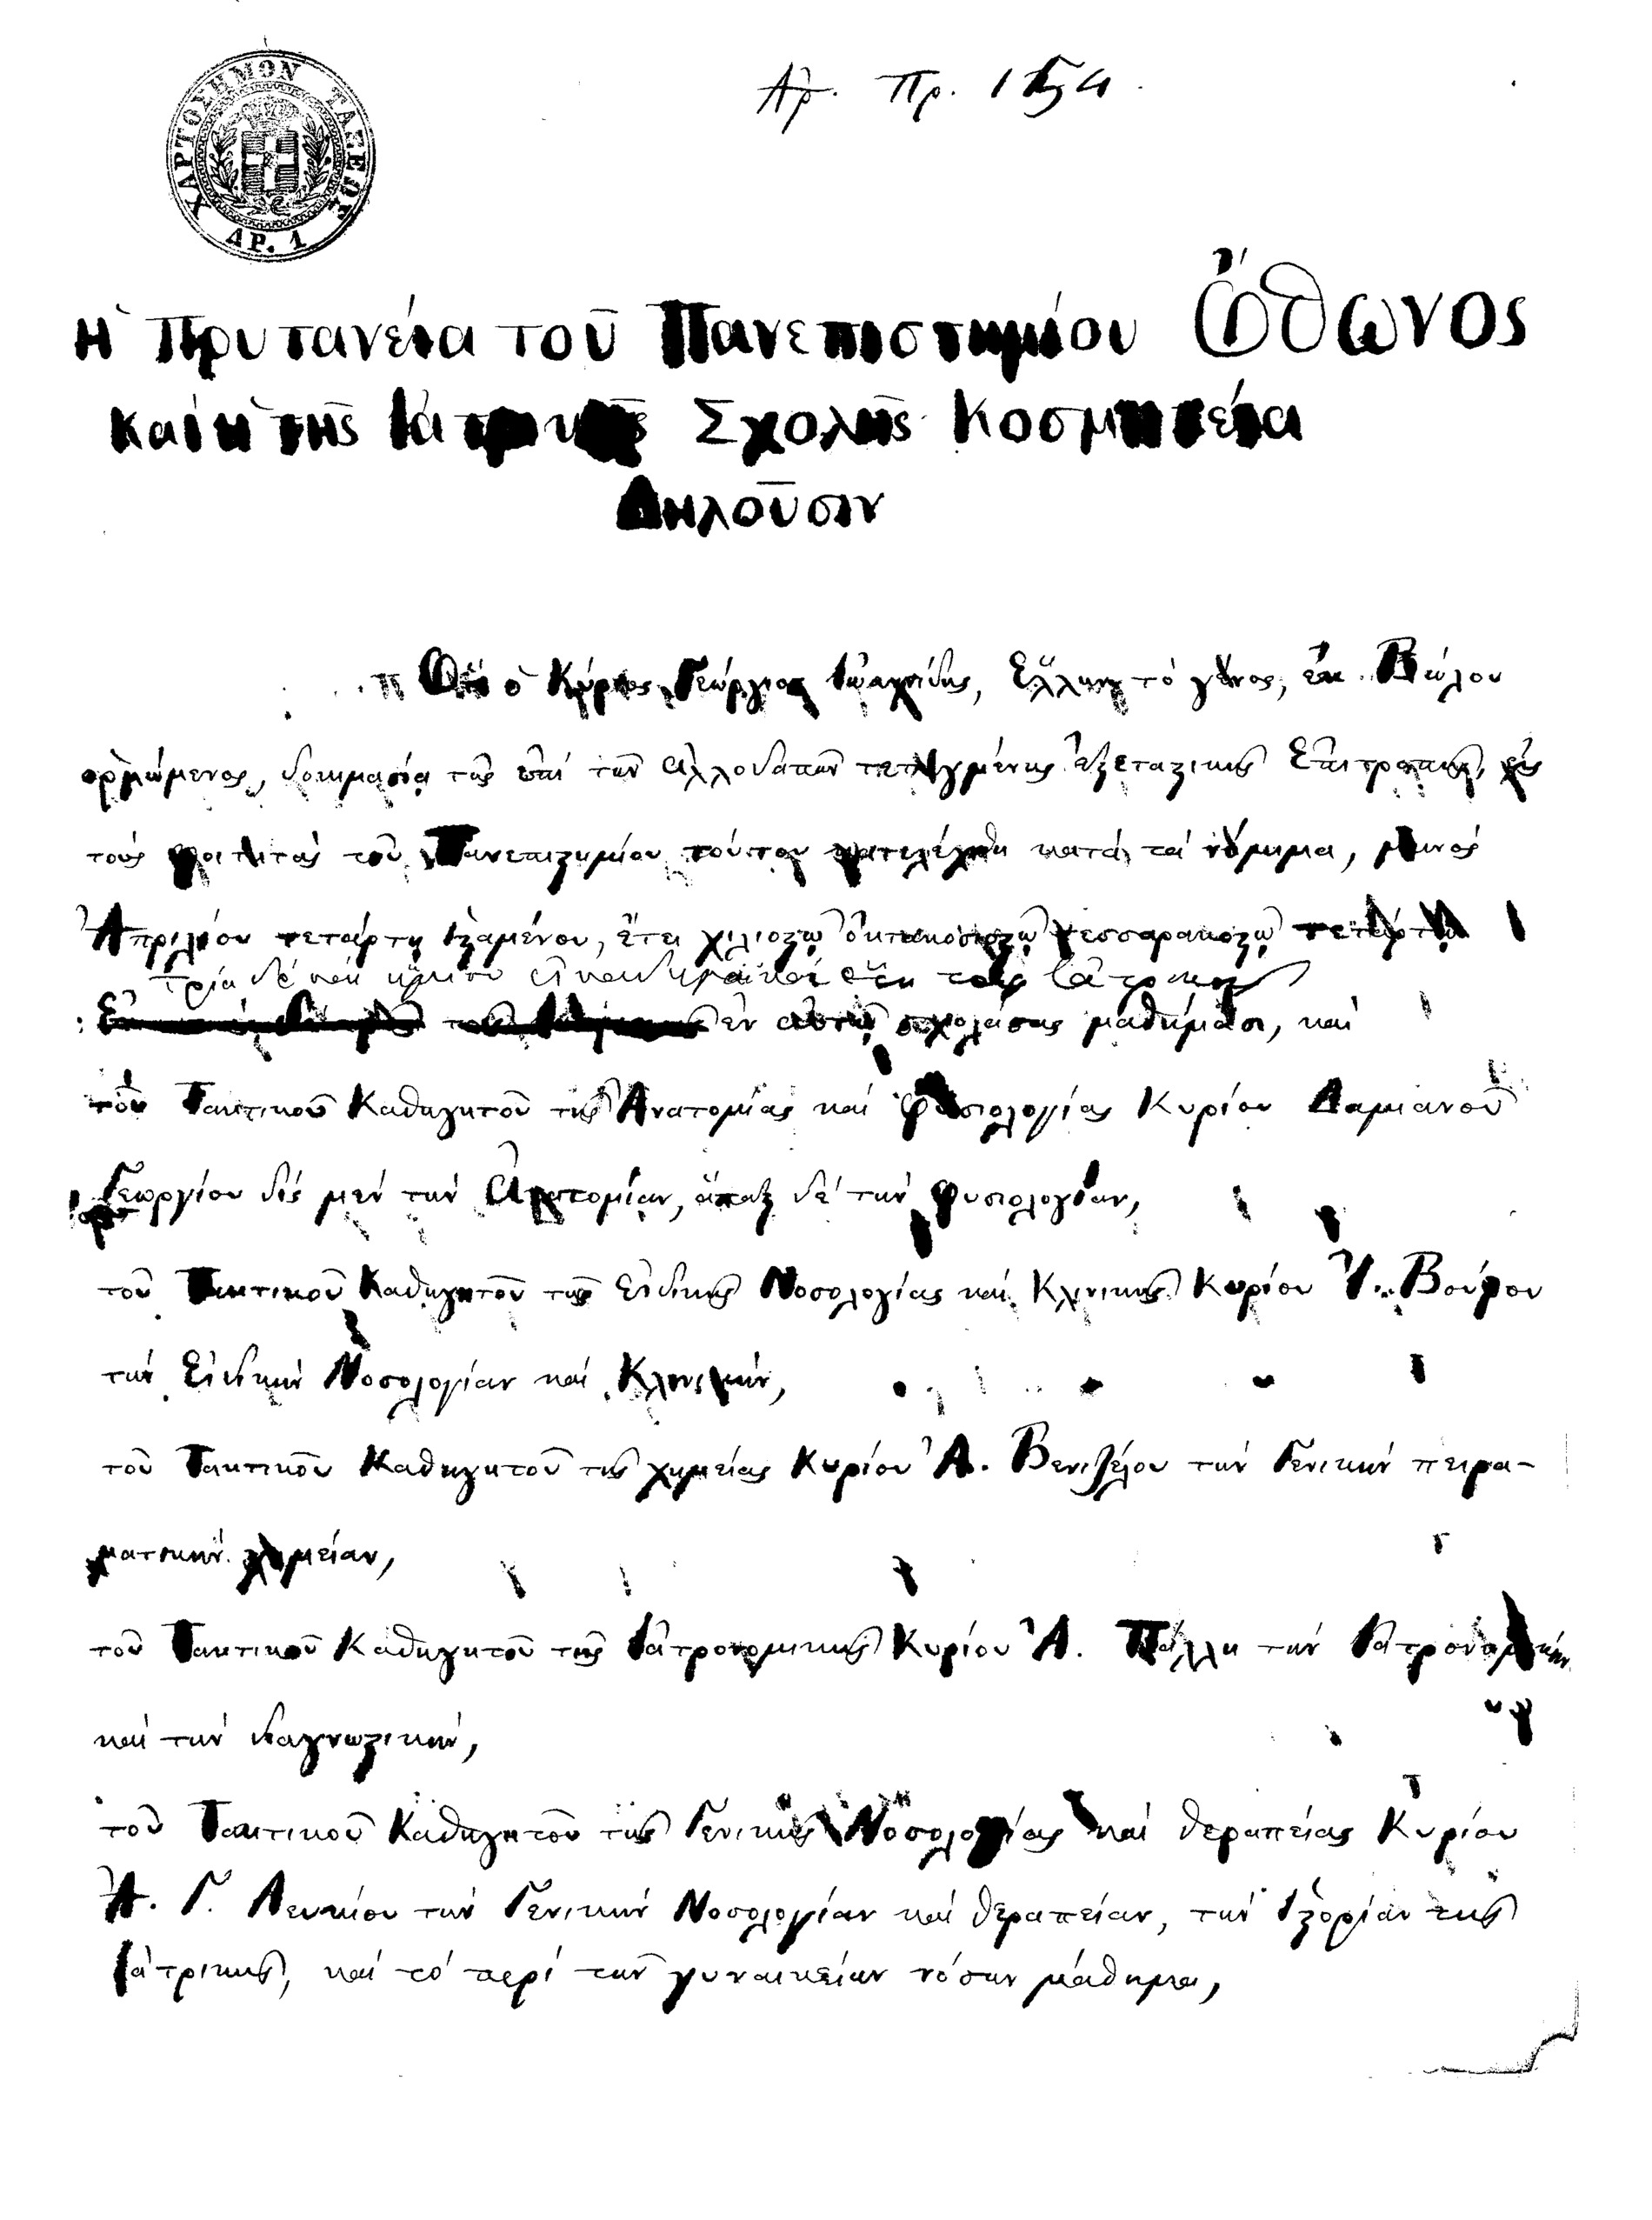 ΧΑΡΤΟΣΗΜΟΝ ΤΑΞΕΩΣ
ΔΡ. 1
Ἀρ. Πρ.
Ἡ Πρυτανεία τοῦ Πανεπιστημίου Ὄθωνος
καὶ ἡ τῆς Ἰατρικῆς Σχολῆς Κοσμητεία
Δηλοῦσιν
Ὅτι ὁ Κύριος Γεώργιος Ἰωαννίδης, Ἕλλην τὸ γένος, ἐκ Βώλου
ὁρμώμενος, δοκιμασίᾳ τῆς ἐπὶ τῶν ἀλλοδαπῶν τεταγμένης ἐξεταστικῆς Ἐπιτροπῆς, εἰς
τοὺς φοιτητὰς τοῦ Πανεπιστημίου τούτου κατελέχθη κατὰ τὰ νόμιμα, μηνὸς
Ἀπριλίου τετάρτῃ ἱσταμένου, ἔτει χιλιοστῷ ὀκτακοσιοστῷ τεσσαρακοστῷ τετάρτῳ
Τρία δὲ καὶ ἥμισυ ἀκαδημαϊκὰ ἔτη τοῖς ἰατρικοῖς
ἐν αὐτῷ σχολάσας μαθήμασι, καὶ
τοῦ Τακτικοῦ Καθηγητοῦ τῆς Ἀνατομίας καὶ Φυσιολογίας Κυρίου Δαμιανοῦ
Γεωργίου δὶς μὲν τὴν Ἀνατομίαν, ἅπαξ δὲ τὴν φυσιολογίαν,
τοῦ Τακτικοῦ Καθηγητοῦ τῆς Εἰδικῆς Νοσολογίας καὶ Κλινικῆς Κυρίου Ἰ. Βούρου
τὴν Εἰδικὴν Νοσολογίαν καὶ Κλινικὴν,
τοῦ Τακτικοῦ Καθηγητοῦ τῆς χημείας Κυρίου Ἀ. Βενιζέλου τὴν Γενικὴν πειρα-
ματικὴν χημείαν,
τοῦ Τακτικοῦ Καθηγητοῦ τῆς Ἰατρονομικῆς Κυρίου Ἀ. Πάλλη τὴν Ἰατρονομικὴν
καὶ τὴν διαγνωστικὴν,
τοῦ Τακτικοῦ Καθηγητοῦ τῆς Γενικῆς Νοσολογίας καὶ θεραπείας Κυρίου
Ἀ. Γ. Λευκίου τὴν Γενικὴν Νοσολογίαν καὶ θεραπείαν, τὴν Ἱστορίαν τῆς
Ἰατρικῆς, καὶ τὸ περὶ τῶν γυναικείων νόσων μάθημα,